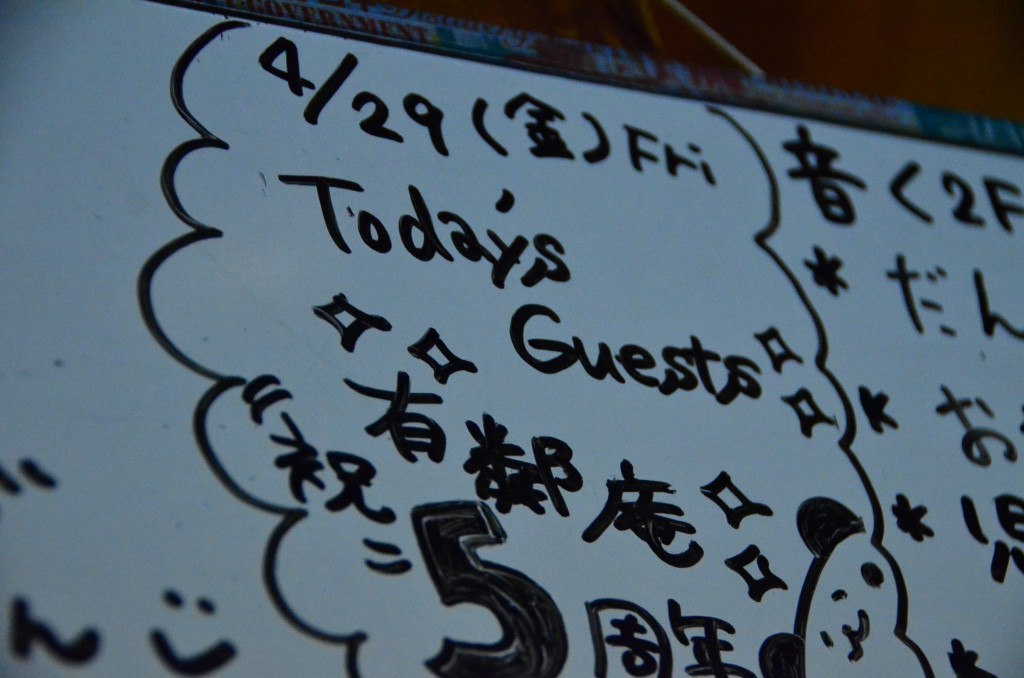 GOVERNMENT
4/29(金)Fri
Today's
Guests
有鄰庵
"祝"
5周年
音く2F
* だん
* お
*
*
ん